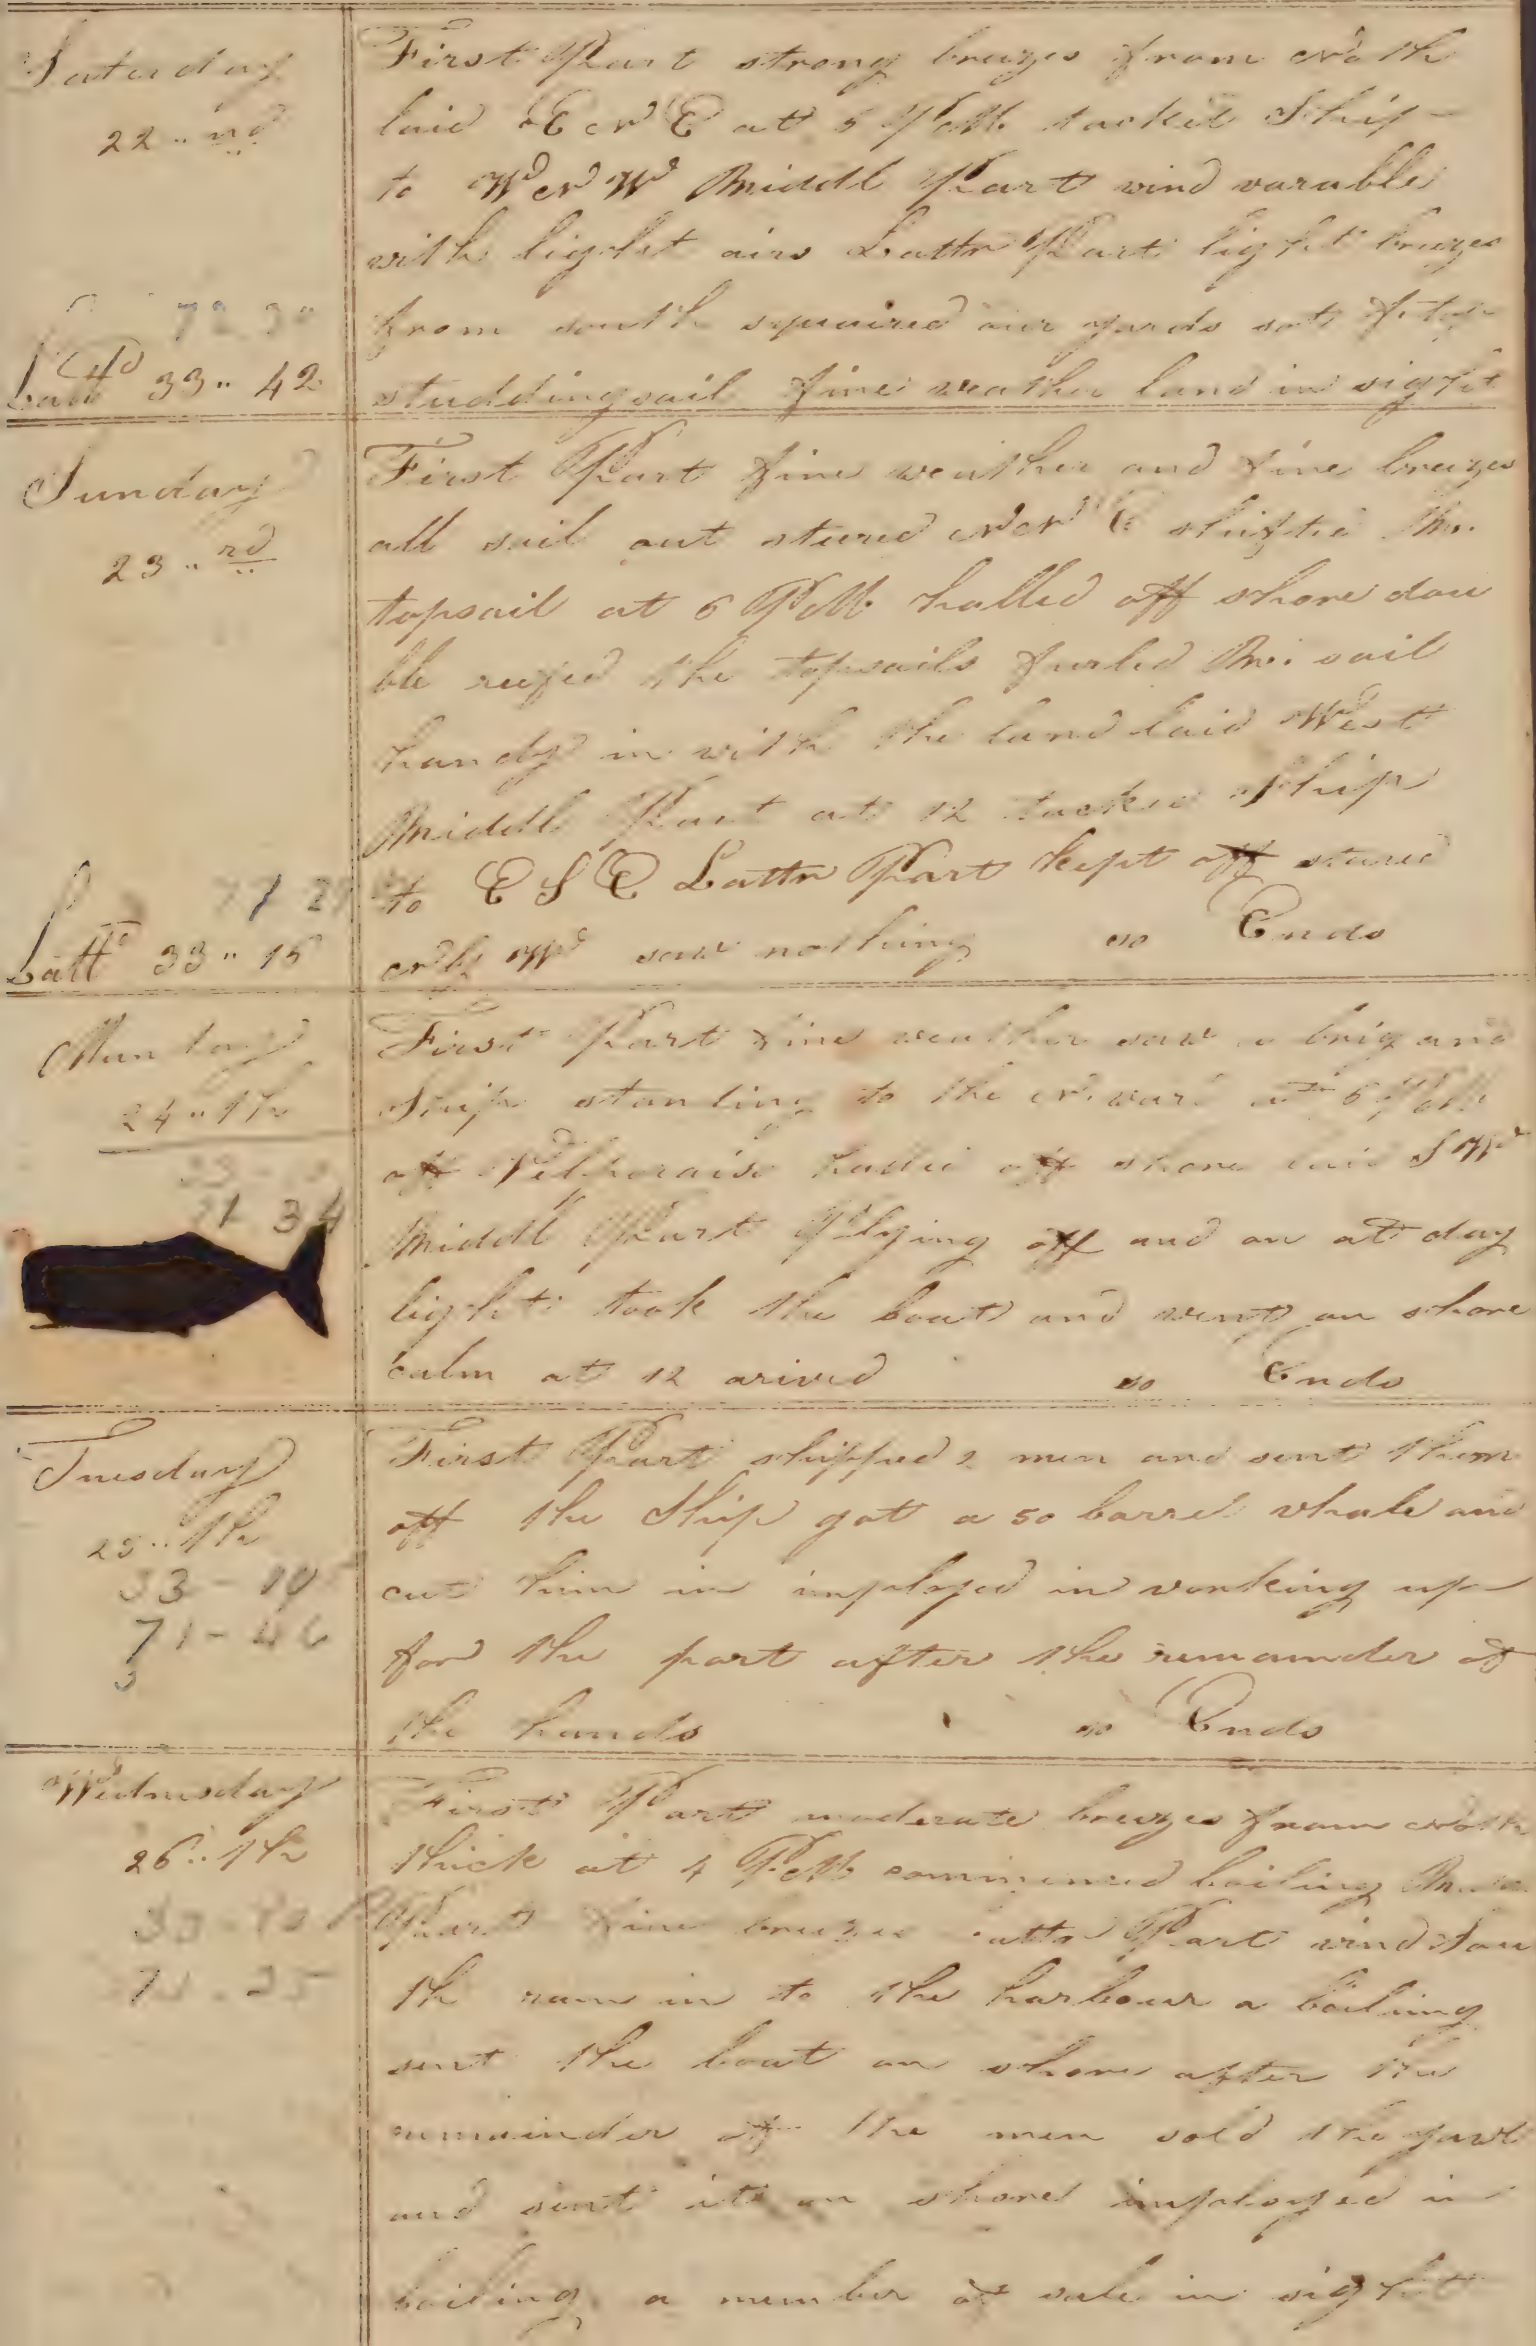 Saturday
22..nd
72 30
Lattd 33.. 42
First Part strong breuzes from North
laid E N E at 5 P M tacked Ship
to W N W Middl Part wind varable
with light airs Lattr Part light breuzes
from south squaired our yards sot f. top
studdingsail fine weather land in sight
Sunday
23..rd
71 2
Lattd 33.. 15
First Part fine weather and fine breuzes
all sail out stured N N E shifted Mn.
topsail at 6 P M halled off shore dou
ble reefed the topsails furled Mn. sail
handy in with the land laid West
Middl Part at 12 tacked Ship
to E S E Lattr Part kept off stured
N by W saw nothing so Ends
Munday
24..th
33
71 34
First Part fine weather saw a brig and
Ship standing to the N. ward at 6 P M
off Vilparaiso halled off shore laid S W
Middl Part Plying off and on at day
light took the boat and went on shore
calm at 12 arived so Ends
Tuesday
25..th
33 - 10
71 - 46
3
First Part shipped 2 men and sent them
off the Ship got a 50 barrel whale and
cut him in imployed in working up
for the port after the remainder of
the hands so Ends
Wednesday
26..th
33
71 - 25
First Part moderate breuzes from North
thick at 4 P M commenced boiling
Part fine breuzes Lattr Part wind Sou
th run in to the harbour a boiling
sent the boat on shore after the
remainder of the men sold the yawl
and sent it on shore imployed in
boiling a number of sale in sight